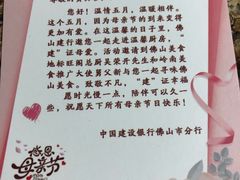 您好！温情五月，温暖相伴。
这个五月，因为母亲节的到来变得
更加有爱。在这温馨的日子里，佛
山建行邀您一起走进温馨厨房，"
建"证母爱。活动邀请到佛山美食
地标旺阁总厨吴荣开先生和岭南美
食推广大使黄父新与您一起寻味佛
山美食。致敬不凡，"建"证幸福
愿时光慢一点，陪伴可以久一
些，祝愿天下所有母亲节日快乐！
中国建设银行佛山市分行
感恩
母亲节